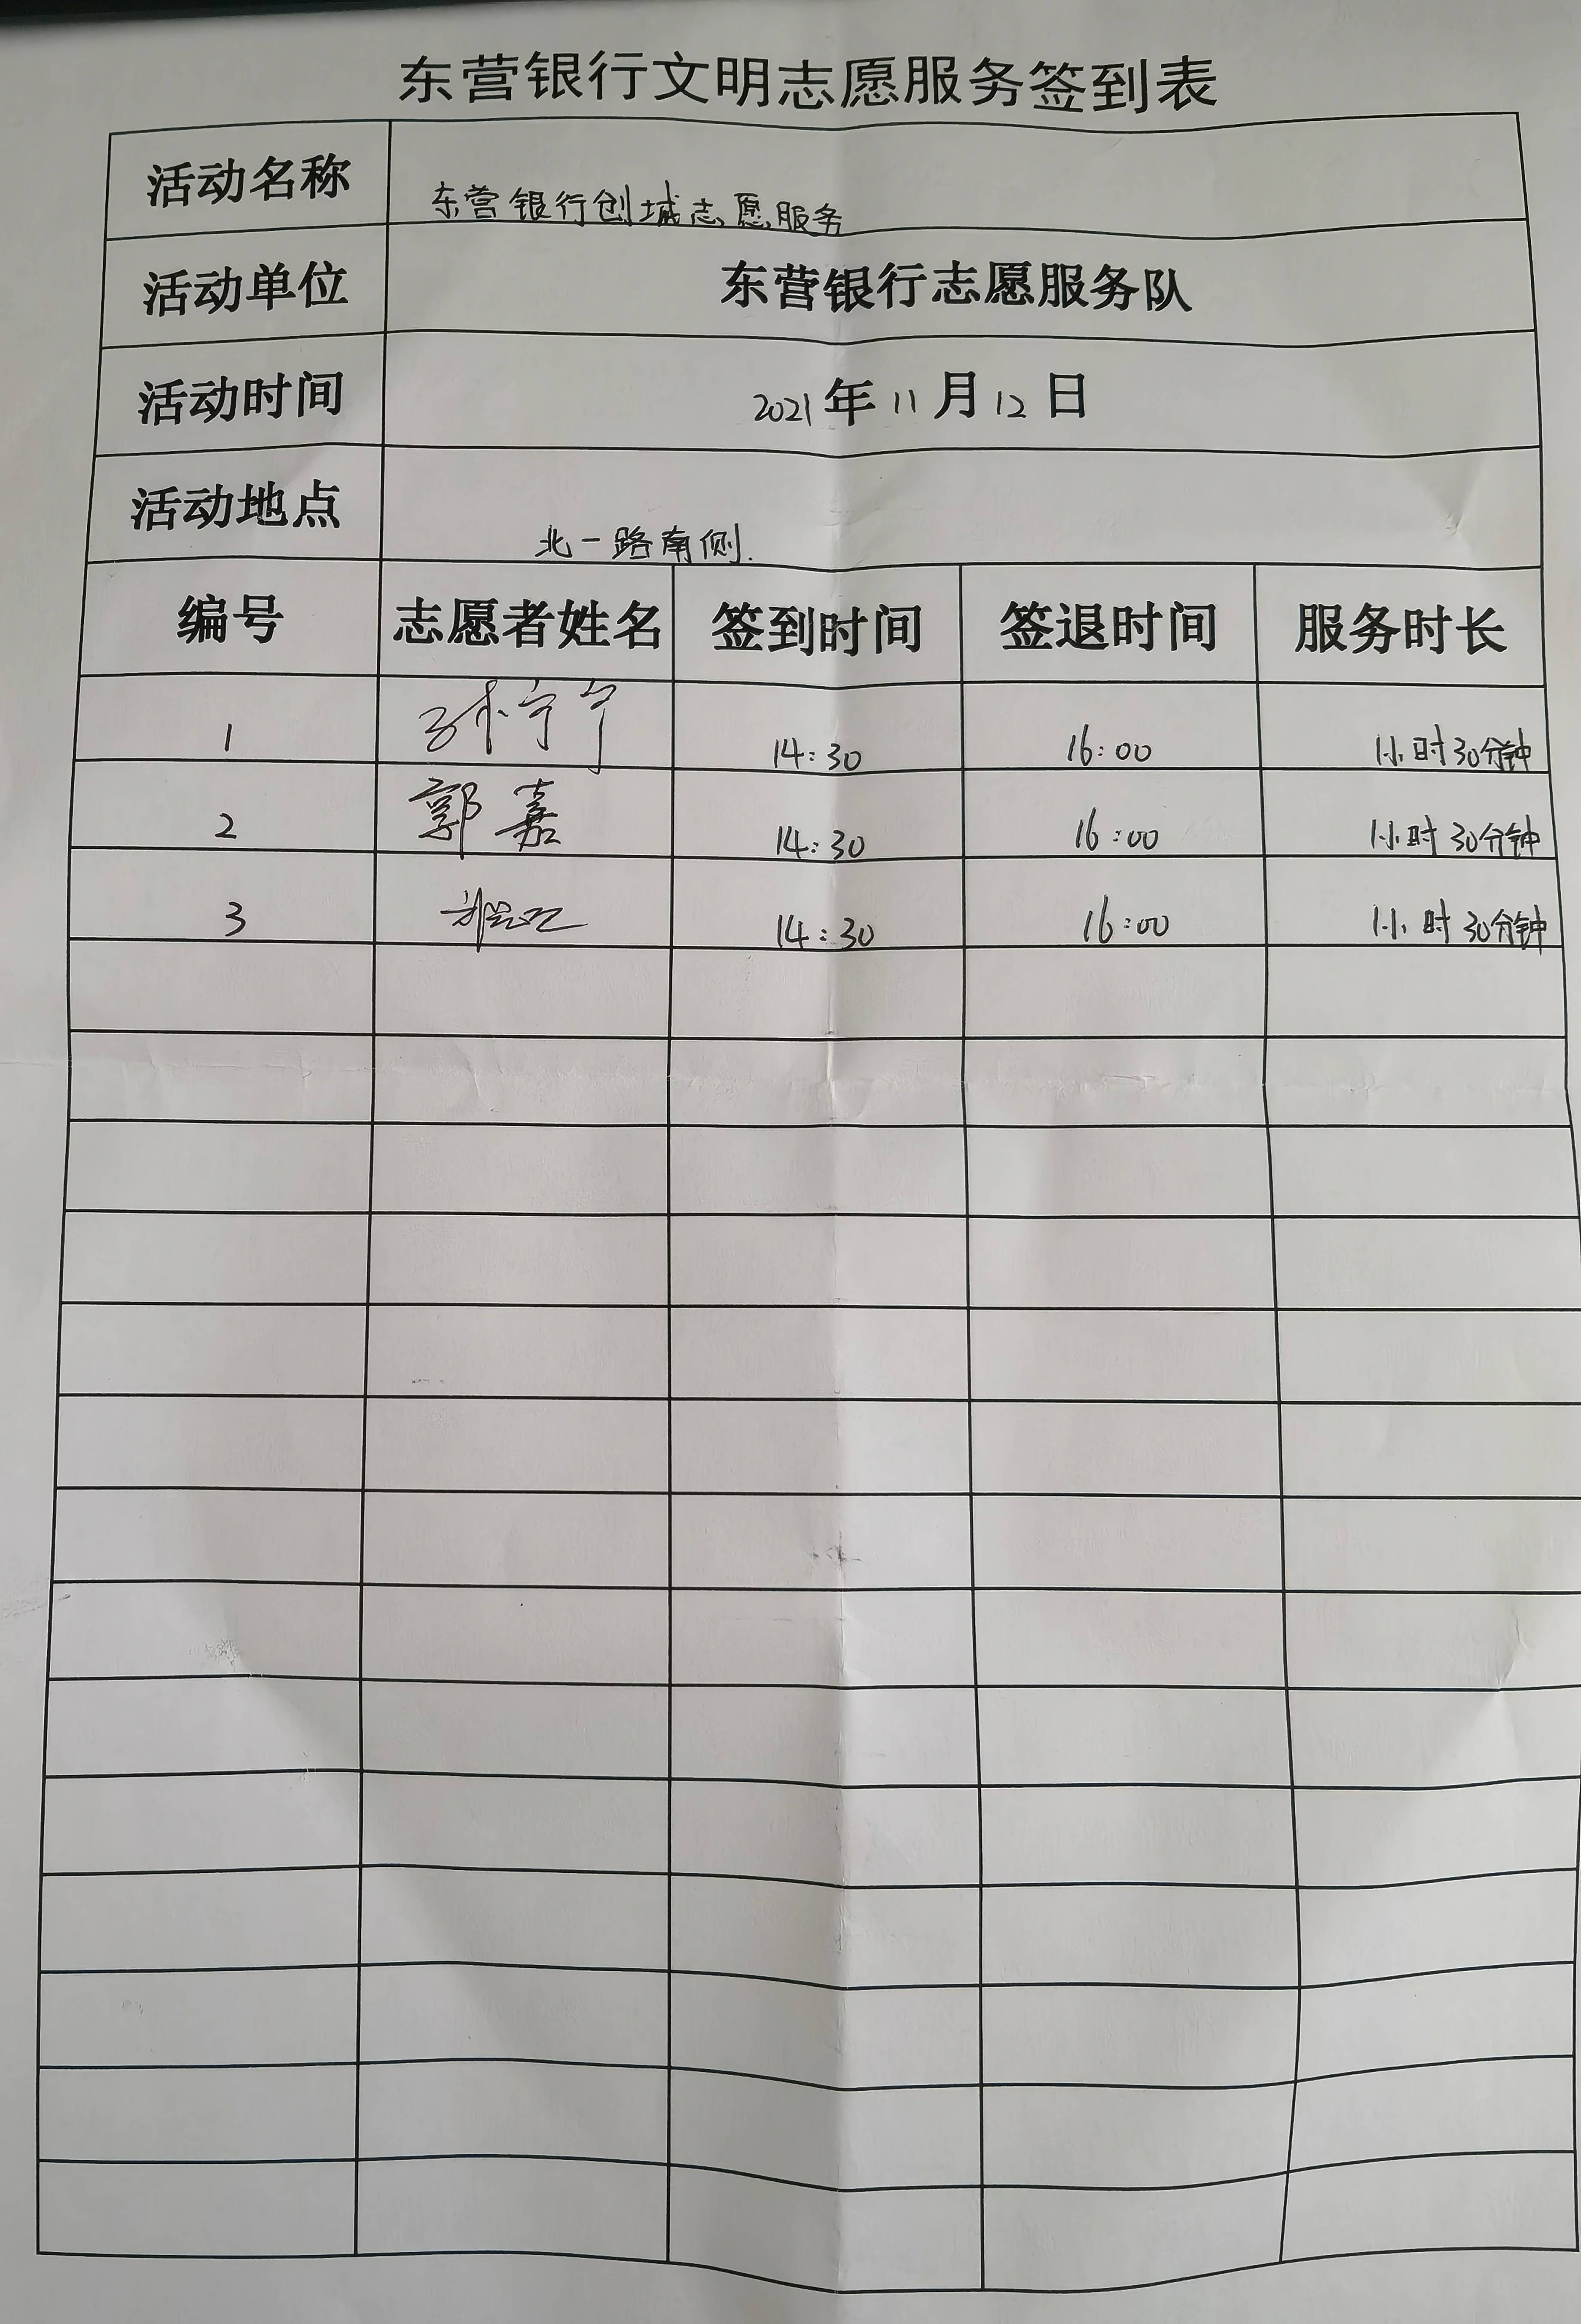 东营银行文明志愿服务签到表
活动名称 东营银行创城志愿服务
活动单位 东营银行志愿服务队
活动时间 2021年11月12日
活动地点 北一路南侧.
编号 志愿者姓名 签到时间 签退时间 服务时长
1 孙宁宁 14:30 16:00 1小时30分钟
2 郭嘉 14:30 16:00 1小时30分钟
3 14:30 16:00 1小时30分钟